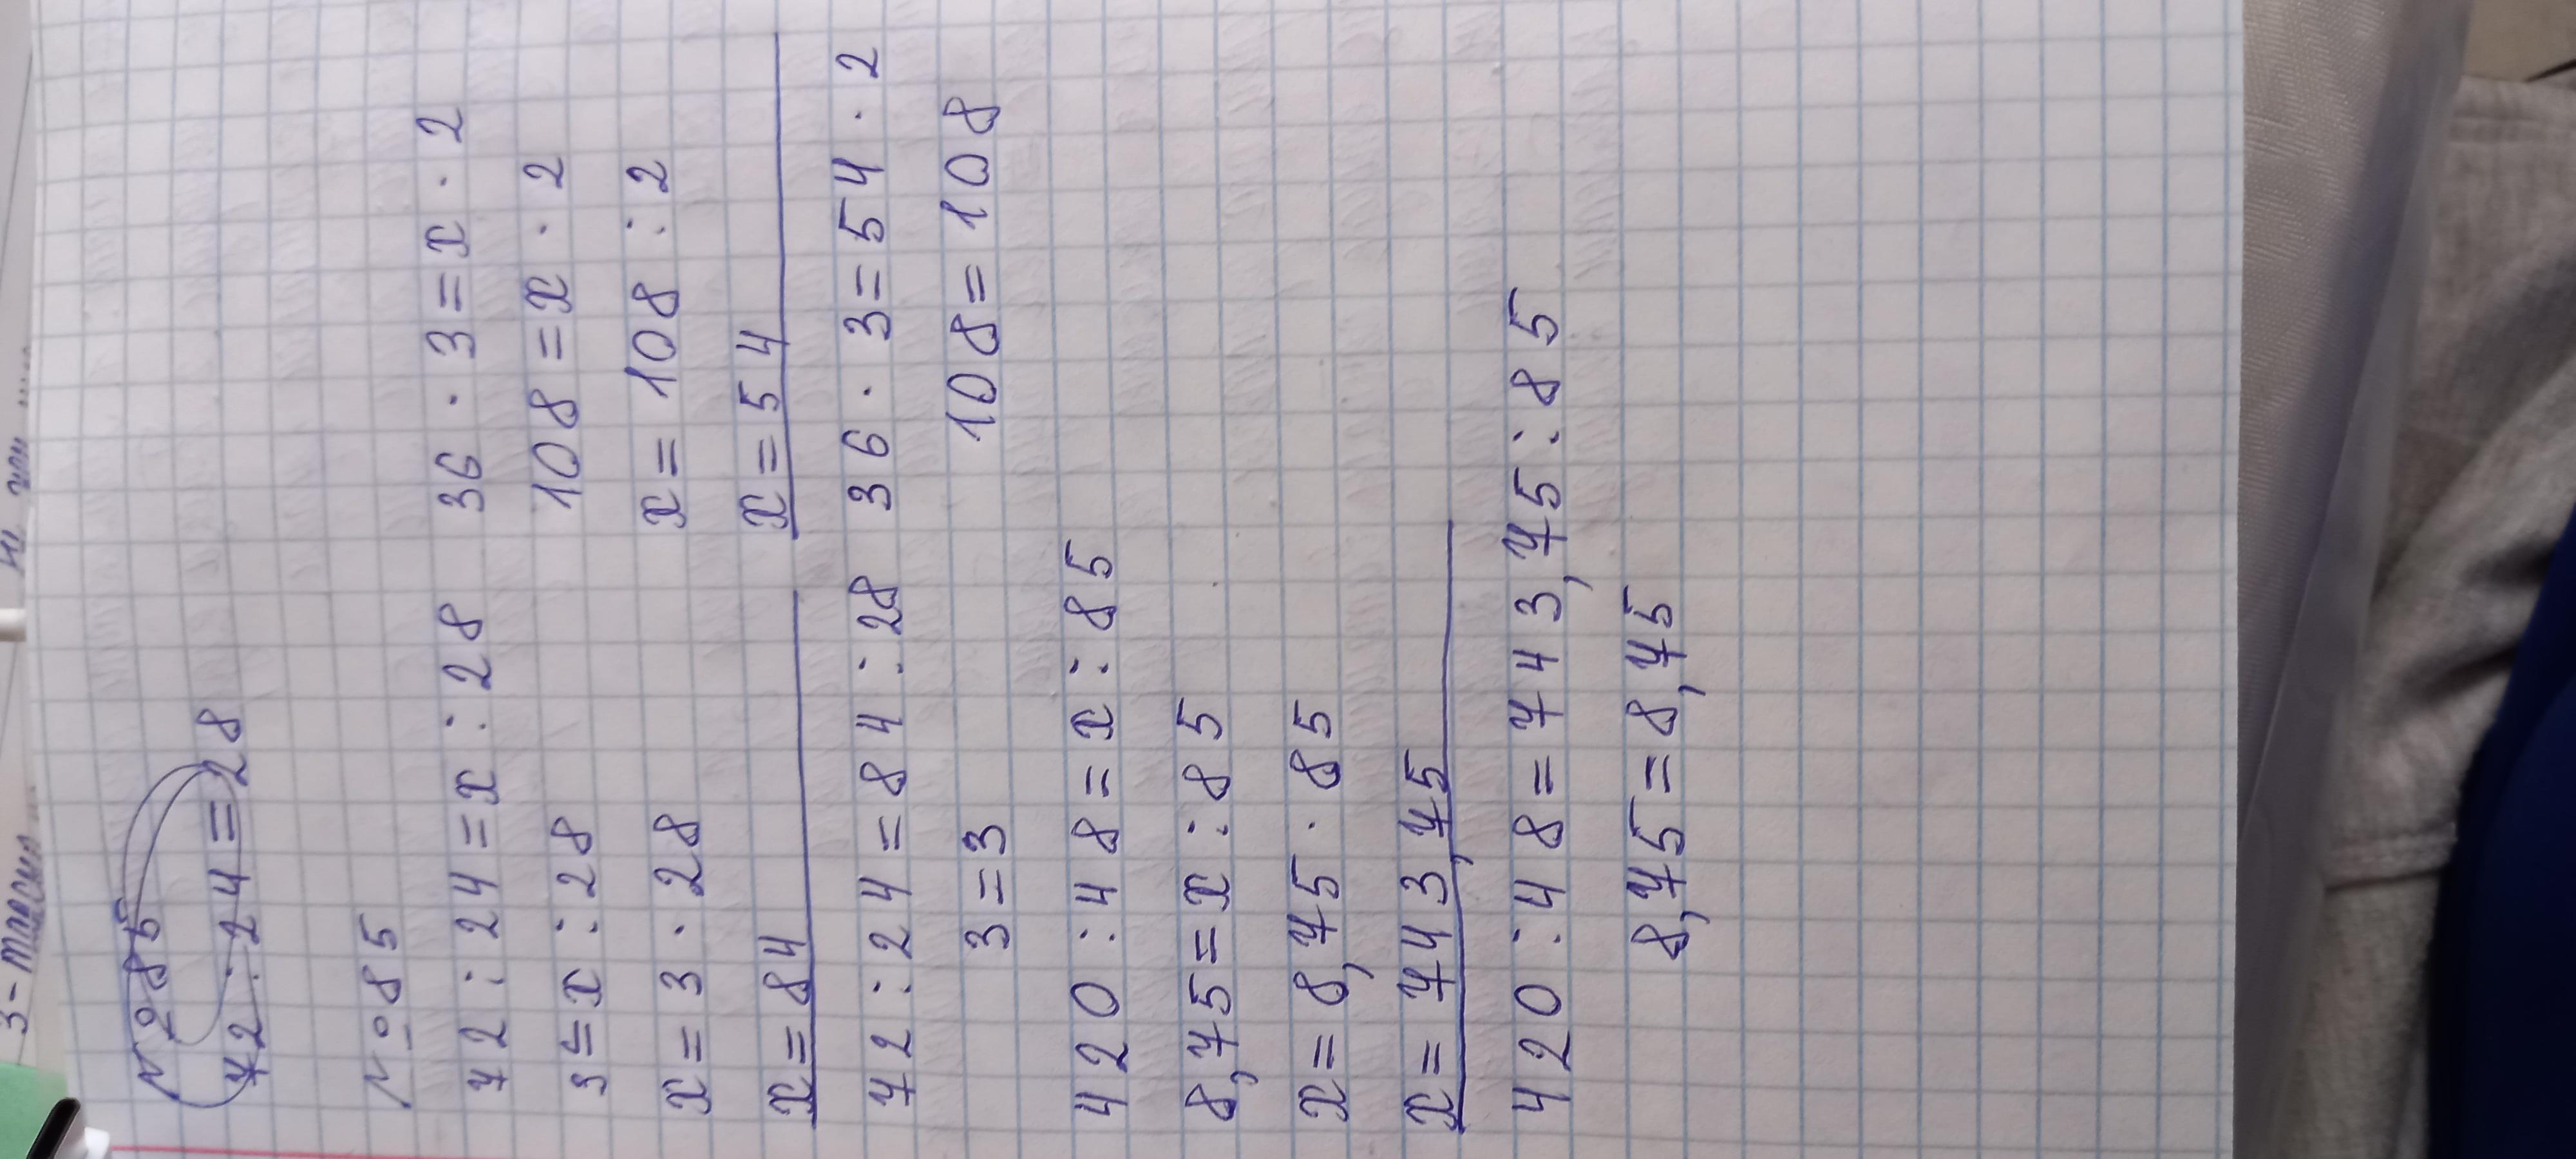 N285
72:24=28
№85
72:24=x:28
3=x:28
x=3·28
x=84
72:24=84:28
3=3
36·3=x·2
108=x·2
x=108:2
x=54
36·3=54·2
108=108
420:48=x:85
8,75=x:85
x=8,75·85
x=743,75
420:48=743,75:85
8,75=8,75